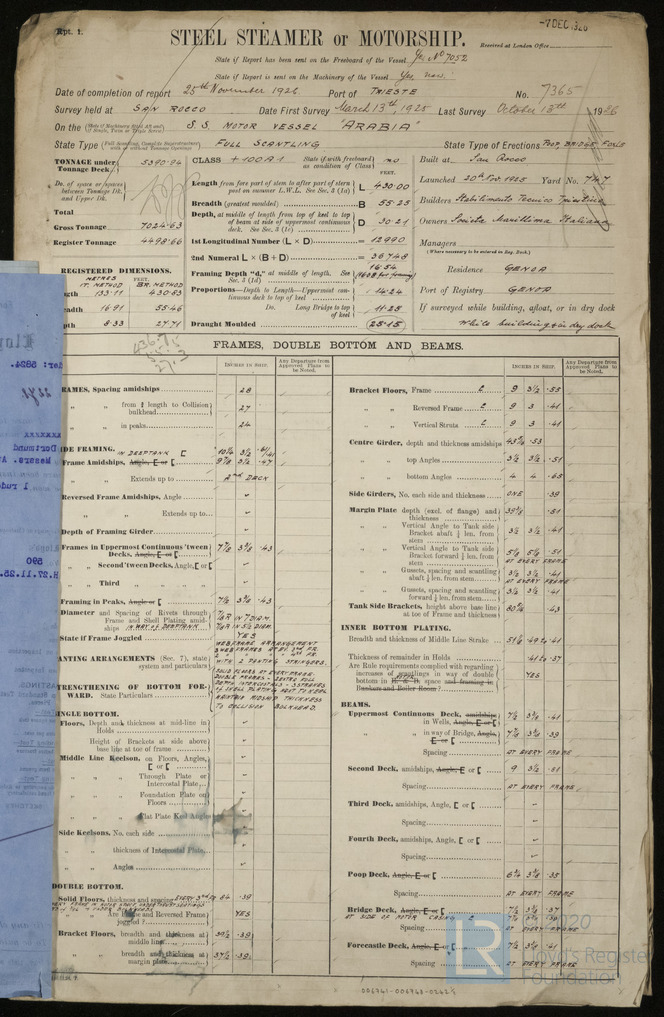 Rpt. 1.
-7 DEC 1926
STEEL STEAMER or MOTORSHIP.
Received at London Office
State if Report has been sent on the Freeboard of the Vessel Yes No 7052
State if Report is sent on the Machinery of the Vessel Yes, now.
Date of completion of report 25th November 1926 Port of TRIESTE No. 7365
Survey held at SAN ROCCO Date First Survey March 13th, 1925 Last Survey October 13th 1926
On the S.S. MOTOR VESSEL "ARABIA"
State Type FULL SCANTLING State Type of Erections POOP, BRIDGE & FO'CLE
TONNAGE under Tonnage Deck 5390.94
Do. of space or spaces between Tonnage Dk. and Upper Dk.
Total
Gross Tonnage 7024.63
Register Tonnage 4498.66
REGISTERED DIMENSIONS.
METRES FEET
IT. METHOD BR. METHOD
ngth 133.11 430.63
eadth 16.91 55.46
pth 8.33 27.71
CLASS +100A1 State if with freeboard as condition of Class no
FEET.
Length from fore part of stem to after part of stern post on summer L.W.L. See Sec. 3 (1a) L 430.00
Breadth (greatest moulded) B 55.25
Depth, at middle of length from top of keel to top of beam at side of uppermost continuous deck. See Sec. 3 (1c) D 30.21
1st Longitudinal Number (L × D) = 12990
2nd Numeral L × (B + D) = 36748
Framing Depth "d," at middle of length. See Sec. 3 (1d) 16.54
Proportions—Depth to Length—Uppermost continuous deck to top of keel 14.24
Do. Long Bridge to top of keel 11.25
Draught Moulded 25.15
Built at San Rocco
Launched 20th Nov. 1925 Yard No. 747
Builders Stabilimento Tecnico Triestino
Owners Societa Marittima Italiana
Managers
(Where necessary to be entered in Reg. Book.)
Residence GENOA
Port of Registry GENOA
If surveyed while building, afloat, or in dry dock
While building & in dry dock
FRAMES, DOUBLE BOTTOM AND BEAMS.
INCHES IN SHIP.
Any Departure from Approved Plans to be Noted.
INCHES IN SHIP.
Any Departure from Approved Plans to be Noted.
RAMES, Spacing amidships 28
" " from ⅗ length to Collision bulkhead 27
" " in peaks 24
IDE FRAMING. IN DEEPTANK [
Frame Amidships, Angle, E or [
" " Extends up to 2nd DECK
Reversed Frame Amidships, Angle
" " Extends up to
Depth of Framing Girder
Frames in Uppermost Continuous 'tween Decks, Angle, E or [ .43
" " Second 'tween Decks, Angle, E or [
" " Third " "
Framing in Peaks, Angle or [ 7½ 3½ .43
Diameter and Spacing of Rivets through Frame and Shell Plating amidships
IN WAY of DEEPTANK
State if Frame Joggled YES
ANTING ARRANGEMENTS (Sec. 7), state system and particulars
WITH 2 PANTING STRINGERS.
TRENGTHENING OF BOTTOM FORWARD. State Particulars
SOLID FLOORS AT EVERY FRAME
TO COLLISION BULKHEAD.
INGLE BOTTOM.
Floors, Depth and thickness at mid-line in Holds
Height of Brackets at side above base line at toe of frame
Middle Line Keelson, on Floors, Angles, E or [
" " Through Plate or Intercostal Plate
" " Foundation Plate on Floors
" " Flat Plate Keel Angles
Side Keelsons, No. each side
" " thickness of Intercostal Plate
" " Angles
DOUBLE BOTTOM.
Solid Floors, thickness and spacing EVERY 3rd FR. 84 .39
" " Are Frame and Reversed Frame joggled? YES
Bracket Floors, breadth and thickness at middle line 39½ .39
" " breadth and thickness at margin plate 37½ .39
Bracket Floors, Frame L 9 3½ .53
" " Reversed Frame L 9 3 .41
" " Vertical Struts L 9 3 .41
Centre Girder, depth and thickness amidships .53
" " top Angles 3½ 3½ .51
" " bottom Angles 4 4 .65
Side Girders, No. each side and thickness ONE .39
Margin Plate depth (excl. of flange) and thickness .51
" " Vertical Angle to Tank side Bracket abaft ⅕ len. from stem 3½ 3½ .41
" " Vertical Angle to Tank side Bracket forward ⅕ len. from stem .51
AT EVERY FRAME
" " Gussets, spacing and scantling abaft ⅕ len. from stem 3½ 3½ .41
AT EVERY FRAME
" " Gussets, spacing and scantling forward ⅕ len. from stem 3½ 3½ .41
Tank Side Brackets, height above base line at toe of Frame and thickness .43
INNER BOTTOM PLATING.
Breadth and thickness of Middle Line Strake
Thickness of remainder in Holds .41 to .37
Are Rule requirements complied with regarding increases of scantlings in way of double bottom in space and framing in Bunkers and Boiler Room? YES
BEAMS.
Uppermost Continuous Deck, amidships in Wells, Angle, E or [ 7½ 3½ .41
" " in way of Bridge, Angle, E or [ 7½ 3½ .39
Spacing AT EVERY FRAME
Second Deck, amidships, Angle, E or [ 9 3½ .51
Spacing AT EVERY FRAME
Third Deck, amidships, Angle, E or [
Spacing
Fourth Deck, amidships, Angle, E or [
Spacing
Poop Deck, Angle, E or [ 3½ .35
Spacing AT EVERY FRAME
Bridge Deck, Angle, E or [ 7½ 3½ .37
Spacing AT EVERY FRAME
Forecastle Deck, Angle, E or [ 7½ 3½ .41
Spacing AT EVERY FRAME
LR
2020
Lloyd's Register
Foundation
006741-006748-0242